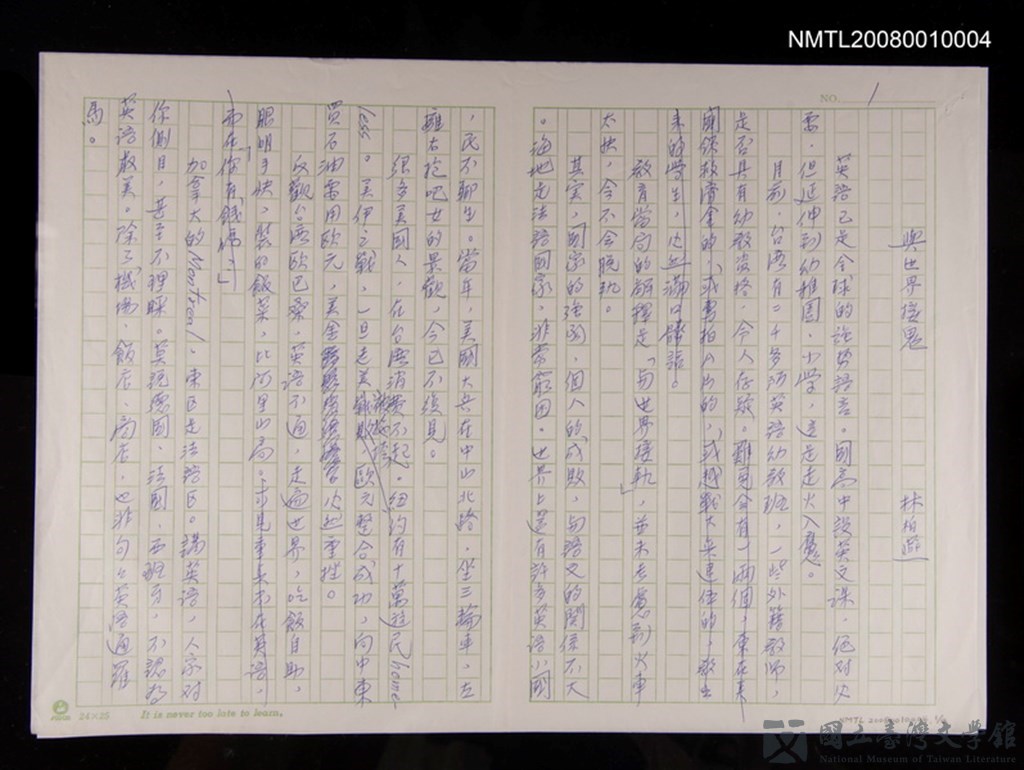 NMTL20080010004
NO. 1
與世界接鬼 林柏燕
英語已是全球的託勢語言。國高中設英文課,絕對必
要。但延伸到幼稚園、小學,這是走火入魔。
目前,台灣有二千多所英語幼教班,一些外籍教師,
是否具有幼教資格,令人存疑。難免會有一兩個,來在未
開領救濟金的,或專拍A片的,或越戰大兵退伍的,教出
來的學生,必然滿口髒話。
教育當局的解釋是「與世界接軌」,並未考慮到火車
太快,會不會脫軌。
其實,國家的強弱,個人的成敗,與語文的關係不大
。海地是法語國家,非常窮困。世界上還有許多英語小國
,民不聊生。當年,美國大兵在中山北路,坐三輪車,左
擁右抱吧女的景觀,今已不復見。
很多美國人,在台灣消費不起。紐約有十萬遊民home-
less。美伊之戰,一旦是美戰敗,歐元整合成功,向中東
買石油需用歐元,美金必然重挫。
反觀台灣歐巴桑,英語不通,走遍世界,吃飯自助,
眼明手快,裝的飯菜,比阿里山高。「求見重未不在英語,
而在「你有錢嗎?」
加拿大的Montreal,東區是法語區。講英語,人家對
你側目,甚至不理睬。莫說德國、法國、西班牙,不認為
英語較美。除了機場、飯店、商店,也非句句英語通羅
馬。
24×25 It is never too late to learn.
國立臺灣文學館
National Museum of Taiwan Literature